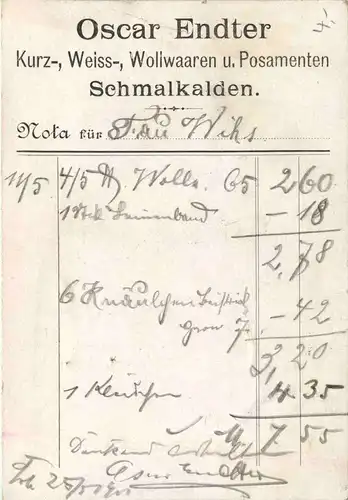 4.
Oscar Endter
Kurz-, Weiss-, Wollwaaren u. Posamenten
Schmalkalden.
Nota für Frau Wihs
11/5 4/5 ℔ Wolle 65 2 60
1 Stck Leinenband – 18
2,78
6 Knäulchen
grau 7 – 42
3,20
1 4 35
M 7 55
Dankend erhalt
Oscar Endter